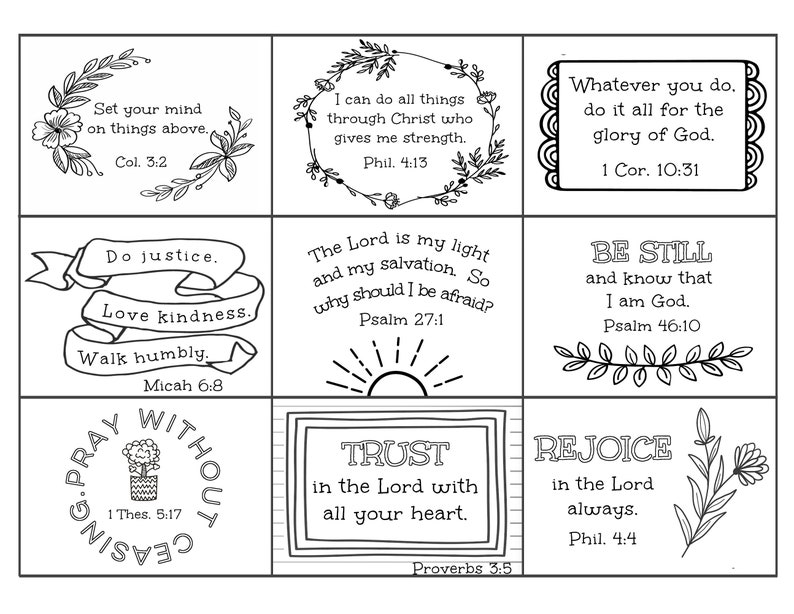 Set your mind
on things above.
Col. 3:2
I can do all things
through Christ who
gives me strength.
Phil. 4:13
Whatever you do,
do it all for the
glory of God.
1 Cor. 10:31
Do justice.
Love kindness.
Walk humbly.
Micah 6:8
The Lord is my light
and my salvation. So
why should I be afraid?
Psalm 27:1
BE STILL
and know that
I am God.
Psalm 46:10
PRAY WITHOUT CEASING.
1 Thes. 5:17
TRUST
in the Lord with
all your heart.
Proverbs 3:5
REJOICE
in the Lord
always.
Phil. 4:4